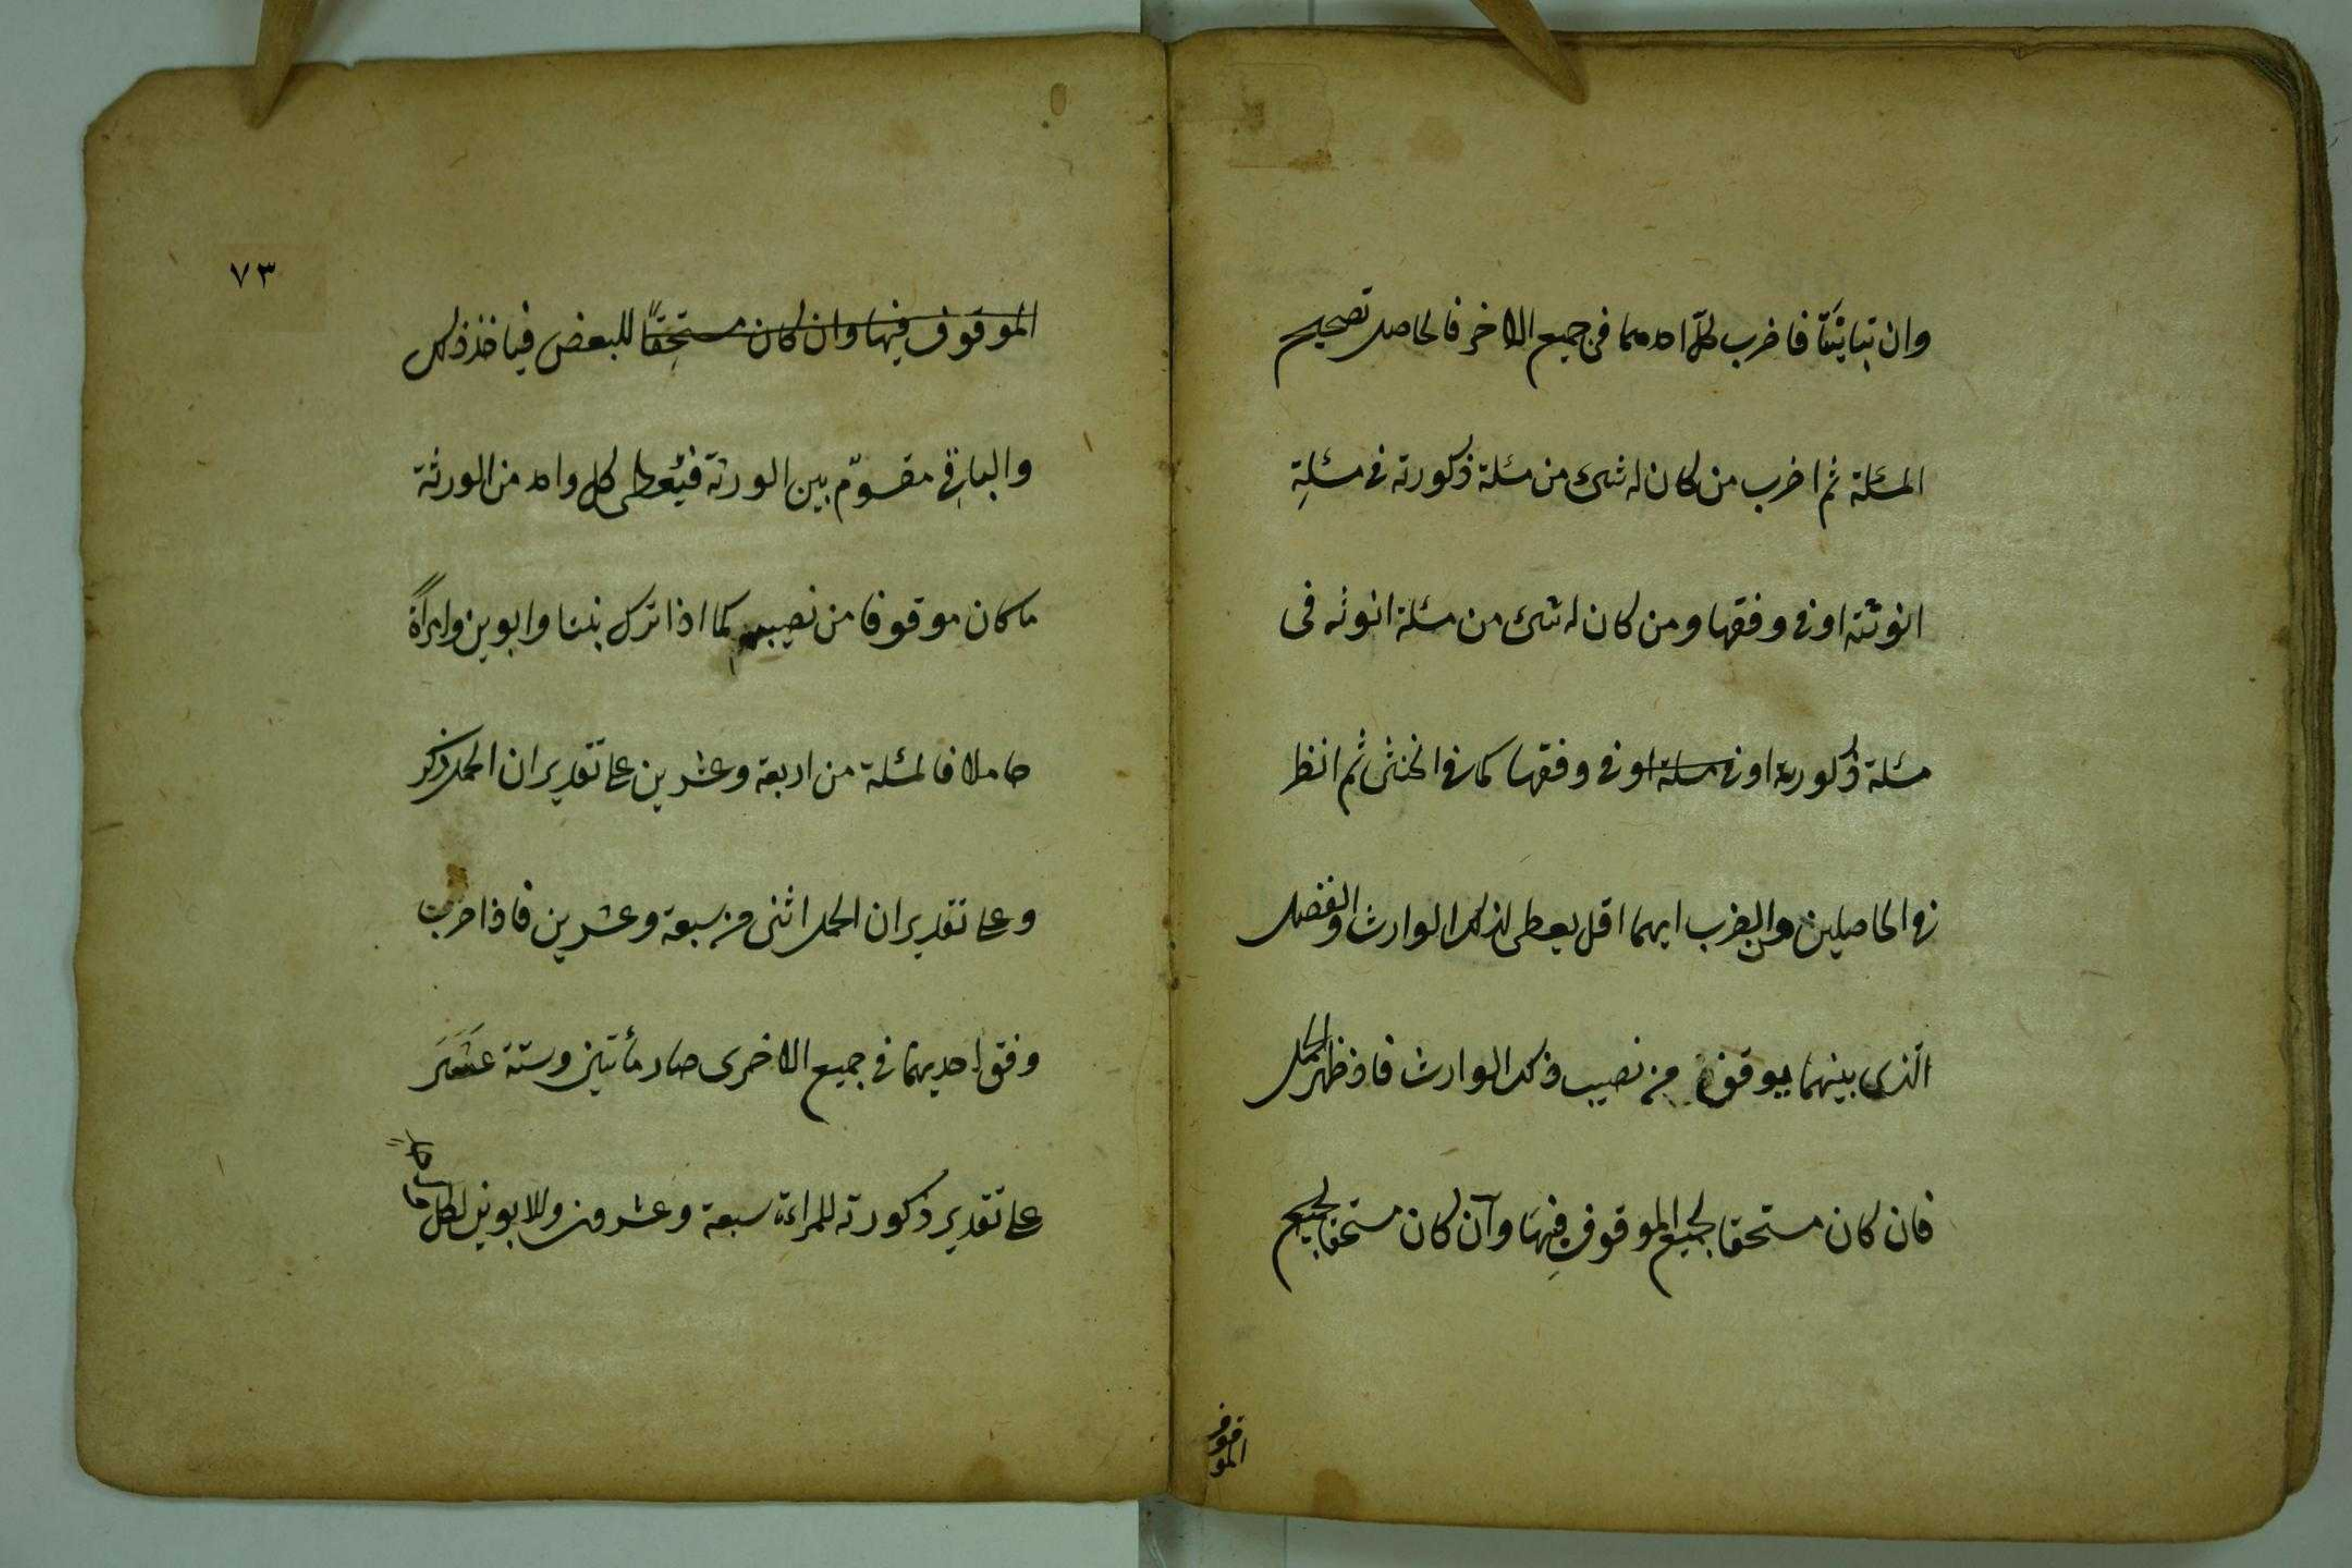 وان تباينتا فاضرب كل احدهما فى جميع الاخر فالحاصل تصحيح
المسئلة ثم اضرب من كان له شئ من مسئلة ذكورته فى مسئلة
انوثته او فى وفقها ومن كان له شئ من مسئلة انوثته فى
مسئلة ذكورته او فى مسئلة او فى وفقها كما فى الخنثى ثم انظر
فى الحاصلين من الضرب ايهما اقل يعطى لذلك الوارث والفضل
الذى بينهما موقوف من نصيب ذلك الوارث فاذ ظهر الحمل
فان كان مستحقا لجميع الموقوف فبها وان كان مستحقا لجميع
الموقوف
٧٣
الموقوف فيها وان كان مستحقا للبعض فياخذ ذلك
والباقى مقسوم بين الورثة فيعطى كل واحد من الورثة
ما كان موقوفا من نصيبهم كما اذا ترك بنتا وابوين وامرأة
حاملا فالمسئلة من اربعة وعشرين على تقدير ان الحمل ذكر
وعلى تقدير ان الحمل انثى من سبعة وعشرين فاذا ضرب
وفق احديهما فى جميع الاخرى صار مأتين وستة عشر
على تقدير ذكورته للمراءة سبعة وعشرون وللابوين لكل